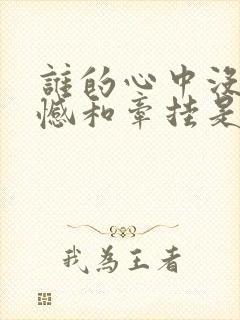 誰的心中沒
憾和牽挂是
我為王者